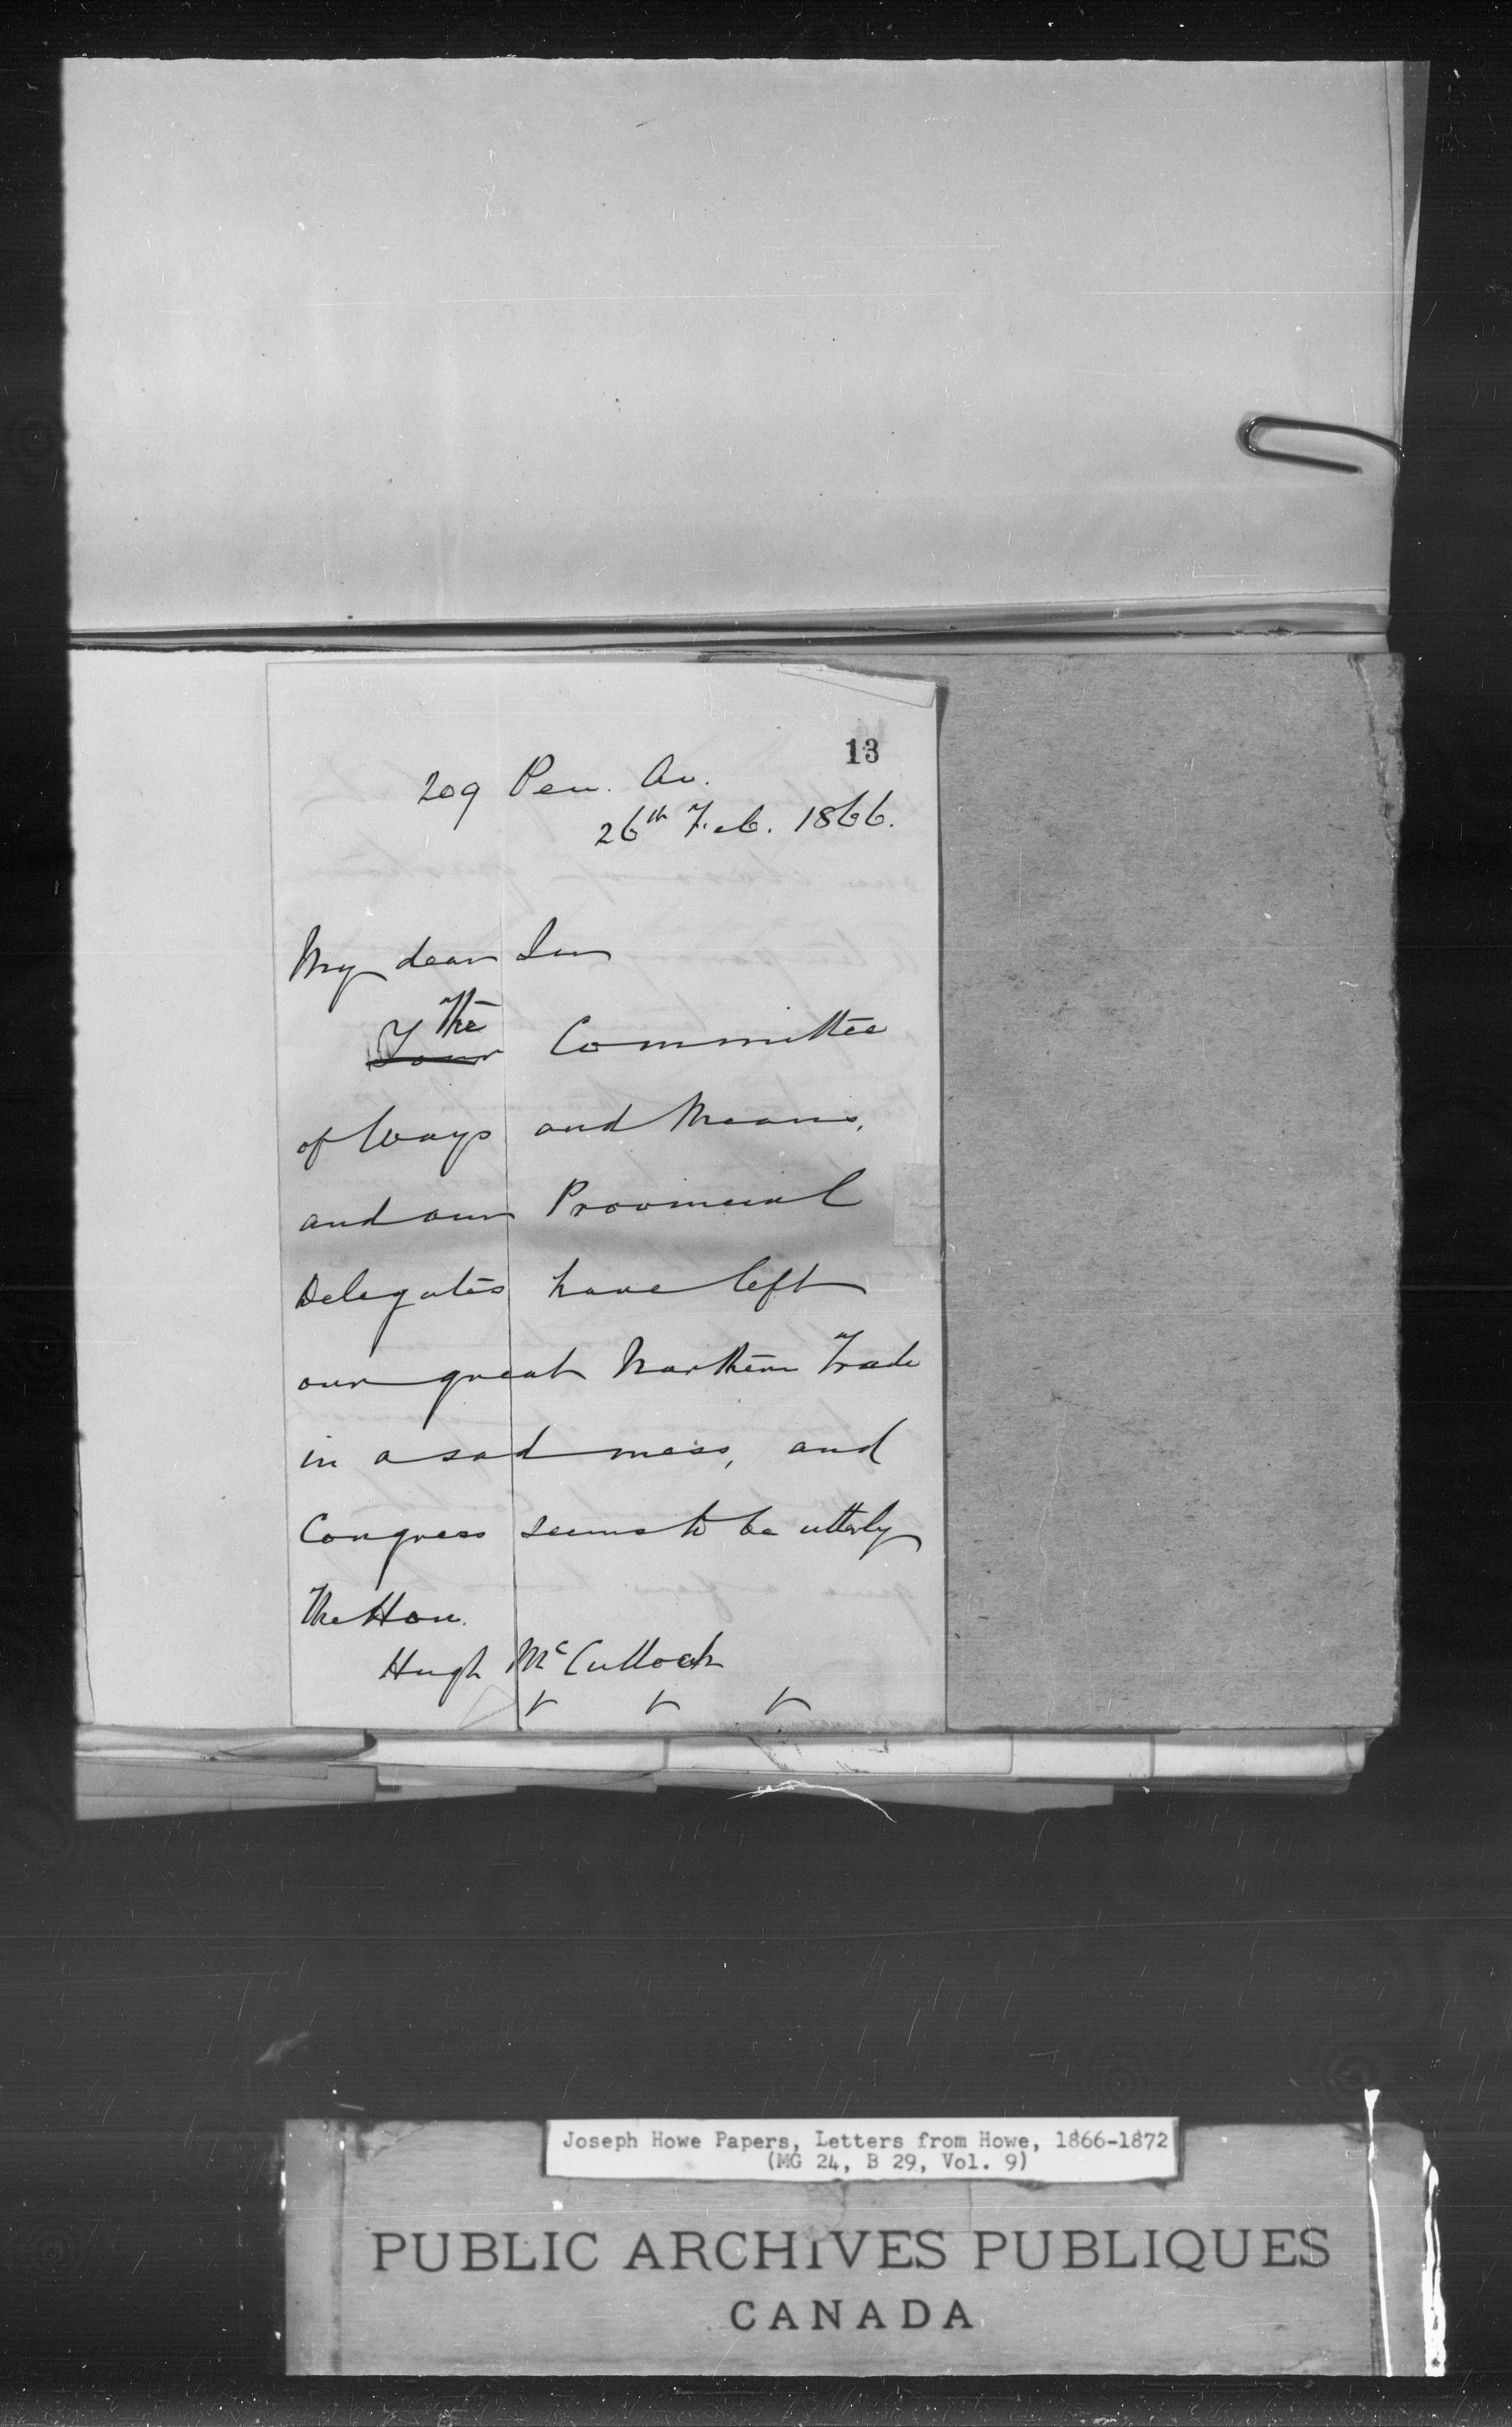 13
209 Pen. Av.
26th Feb. 1866.
My dear Sir
The
Your Committee
of Ways and Means,
and our Provincial
Delegates have left
our great Northern Trade
in a sad mess, and
Congress seems to be utterly
The Hon.
Hugh McCulloch
Joseph Howe Papers, Letters from Howe, 1866-1872
(MG 24, B 29, Vol. 9)
PUBLIC ARCHIVES PUBLIQUES
CANADA